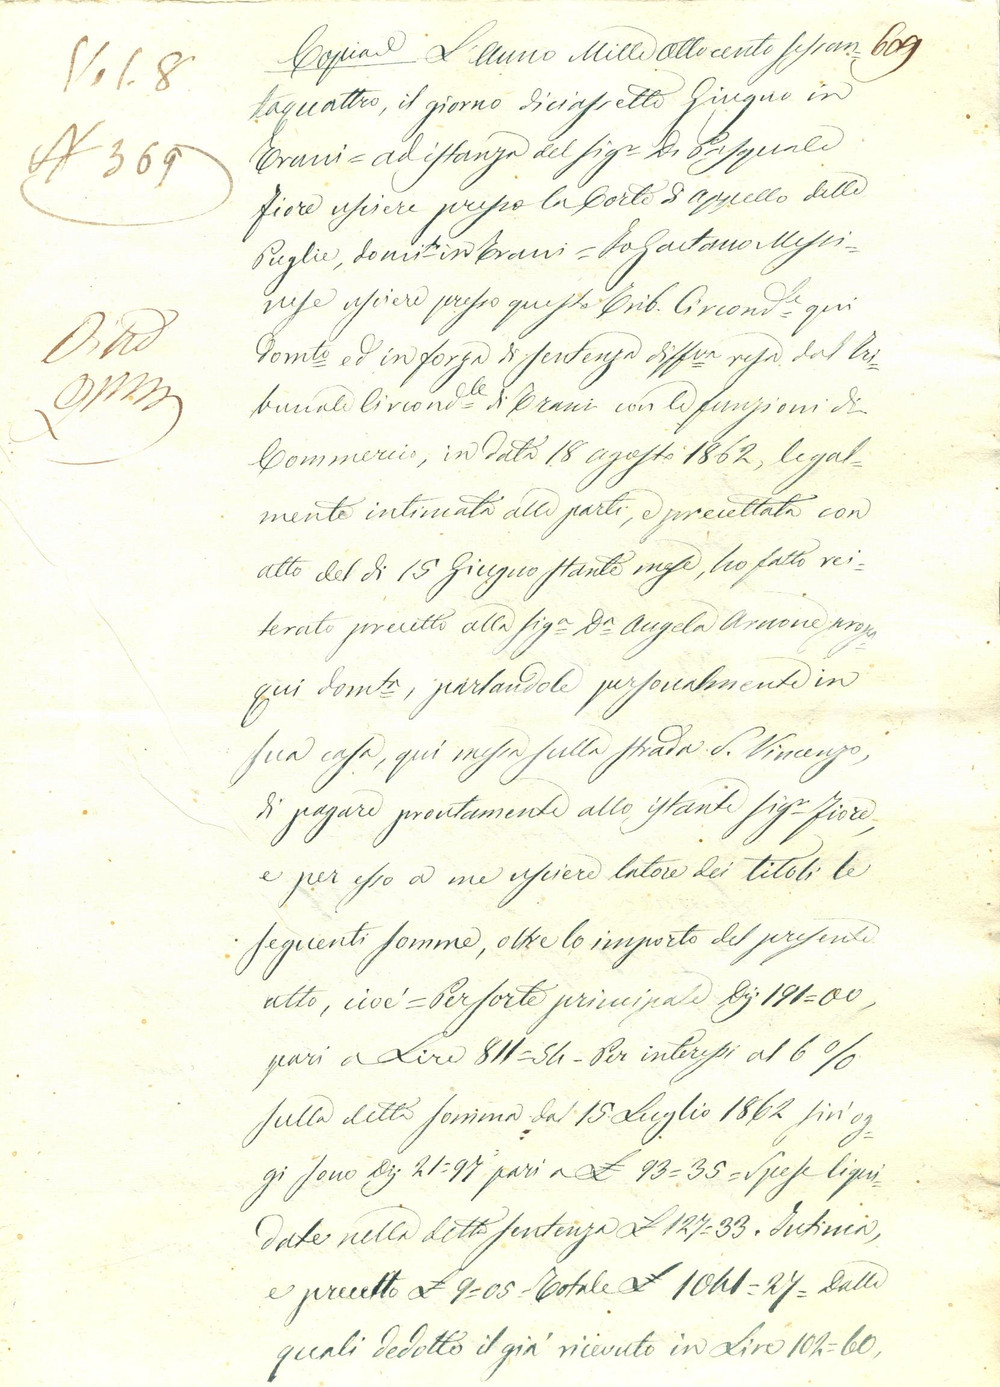 Vol. 8
N 369
Copia L'Anno Mille ottocento sessan- 609
taquattro, il giorno diciassette Giugno in
Trani = ad istanza del sigr Dn Pasquale
Fiore usciere presso la Corte di appello delle
Puglie, domito in Trani = Io Gaetano Messi-
nese usciere presso questo Trib. Circondle qui
domto ed in forza di sentenza diffva resa dal Tri-
bunale Circondle di Trani con le funzioni di
Commercio, in data 18 agosto 1862, legal-
mente intimata alle parti, e precettata con
atto del di 15 Giugno stante mese, ho fatto rei-
terato precetto alla siga Da Angela Arnone propa
qui domta, parlandole personalmente in
sua casa, qui messa sulla strada S. Vincenzo,
di pagare prontamente allo istante sigr Fiore,
e per esso a me usciere latore dei titoli le
seguenti somme, oltre lo importo del presente
atto, cioè = Per sorte principale Dti 191=00,
pari a Lire 811=54 - Per interessi al 6 %
sulla detta somma dal 15 Luglio 1862 sin'og-
gi sono Dti 21=97 pari a £ 93=35 = Spese liqui-
date nella detta sentenza £ 127=33. Intima,
e precetto £ 9=05 - Totale £ 1041=27= Dalle
quali dedotto il già ricevuto in Lire 102=60,